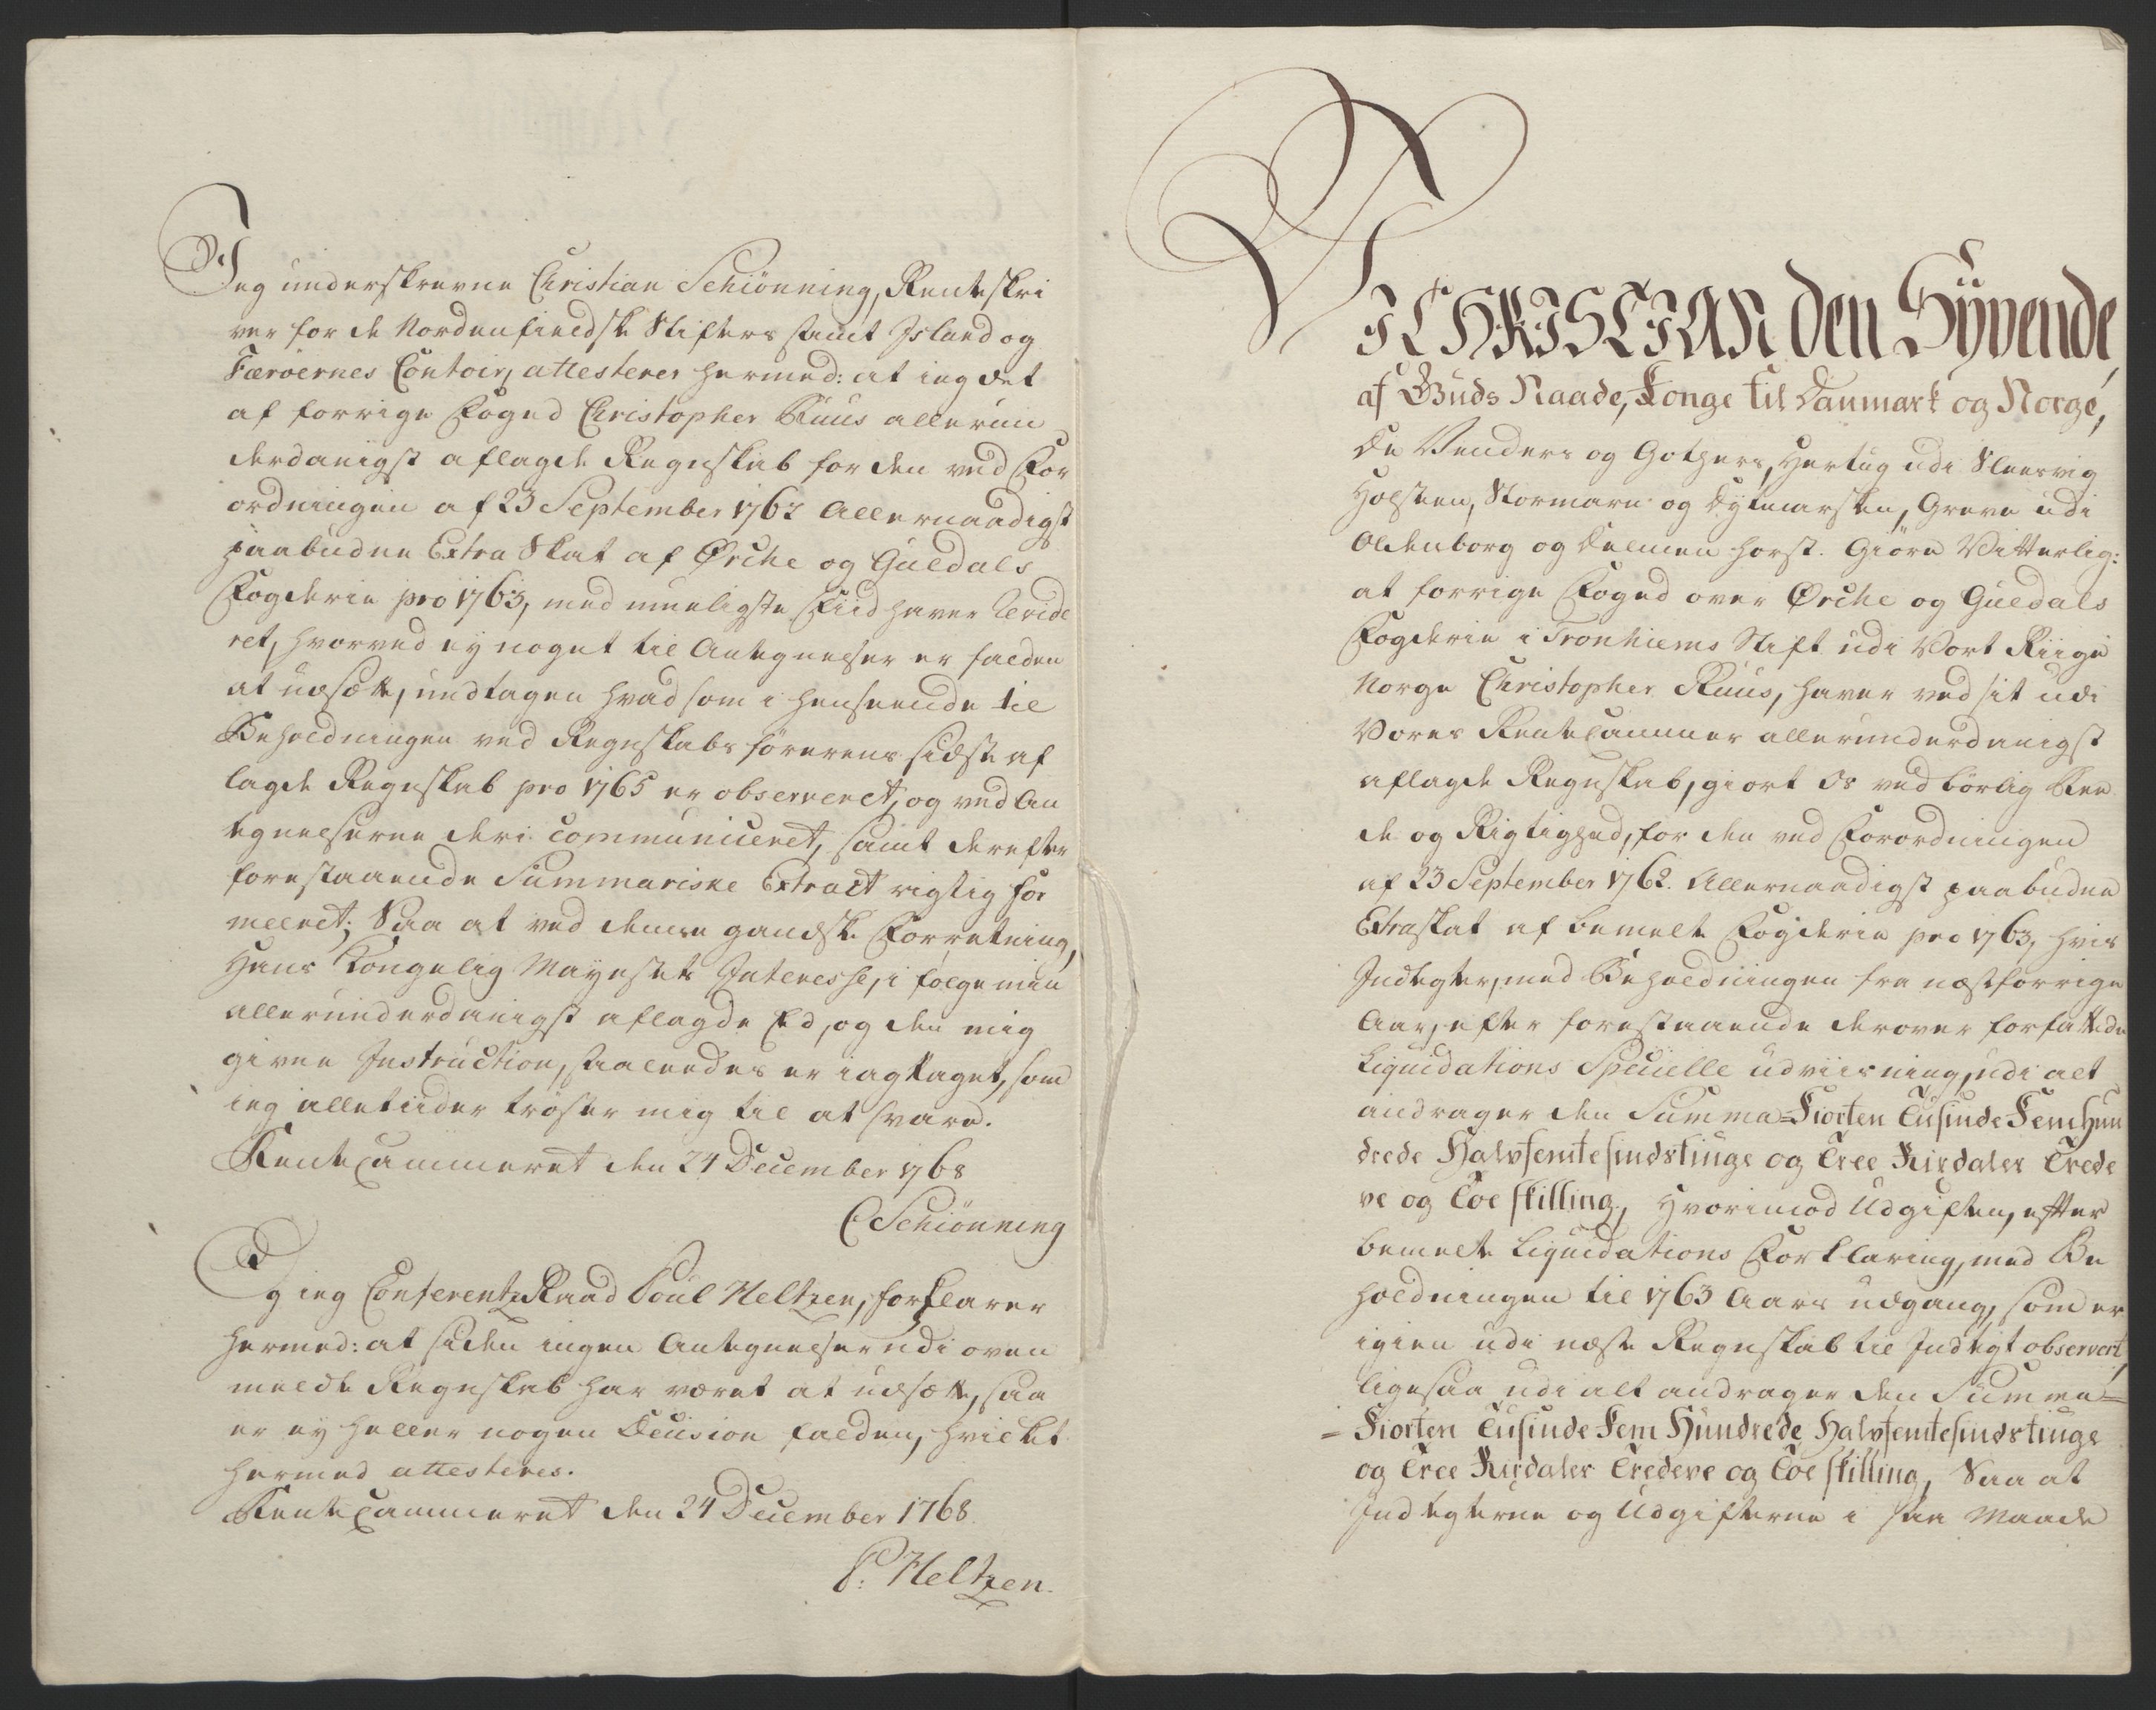 Jeg underskrevne Christian Schiönning, Renteskri
ver for de Nordenfieldske Stifters samt Island og
Færöernes Contoir, attesterer hermed: at ieg det
af forrige Foged Christopher Ruus allerun
derdanigst aflagde Regnskab for den ved For
ordningen af 23 September 1762 Allernaadigst
paabudne Extra Skat af Ørche og Guldals
Fogderie pro 1763, med mueligste Fliid haver Revide
ret, hvorved ey noget til Antegnelser er falden
at udsætte, undtagen hvad som i henseende til
Beholdningen ved Regnskabsförerens sidst af
lagde Regnskab pro 1765 er observeret, og ved An
tegnelserne deri communiceret, samt derefter
forestaaende Summariske Extract rigtig for
meeret; Saa at ved denne gandske Forretning,
Hans Kongelig Mayestets Interesse, i fölge min
allerunderdanigst aflagde Eed, og den mig
given Instruction, saaledes er iagttaget, som
ieg alletiider tröster mig til at svare.
RenteCammeret den 24 December 1768
C Schiönning
Og ieg ConferentzRaad Poul Heltzen, forklarer
hermed: at siden ingen Antegnelser udi oven
meldte Regnskab har været at udsætte, saa
er ey heller nogen Decision falden, hvilket
hermed attesteres.
RenteCammeret den 24 December 1768.
P. Heltzen.
VI CHRISTIAN den Syvende,
af Guds Naade, Konge til Danmark og Norge,
De Venders og Gothers, Hertug udi Slesvig
Holsten, Stormarn og Dytmarsken, Greve udi
Oldenborg og Delmenhorst. Giöre Vitterlig:
at forrige Foged over Ørche og Guldals
Fogderie i Tronhiems Stift udi Vort Riige
Norge Christopher Ruus, haver ved sit udi
Vores RenteCammer allerunderdanigst
aflagde Regnskab, giort Os ved börlig Ree
de og Rigtighed, for den ved Forordningen
af 23 September 1762. Allernaadigst paabudne
Extraskat af bemelte Fogderie pro 1763, hvis
Indtegter, med Beholdningen fra næstforrige
Aar, efter forestaaende derover forfattede
Liquidations Specielle udviisning, udi alt
andrager den Summa = Fiorten Tusinde Fem Hun
drede Halvfemtesindstiuge og Tree Rixdaler Trede
ve og Toe skilling, Hvorimod Udgiften, efter
bemelte Liquidations Forklaring, med Be
holdningen til 1763 Aars udgang, som er
igien udi næste Regnskab til Indtegt observert,
ligesaa udi alt andrager den Summa =
= Fiorten Tusinde Fem Hundrede Halvfemtesindstiuge
og Tree Rixdaler Tredeve og Toe skilling, Saa at
Indtegterne og Udgifterne i saa Maade